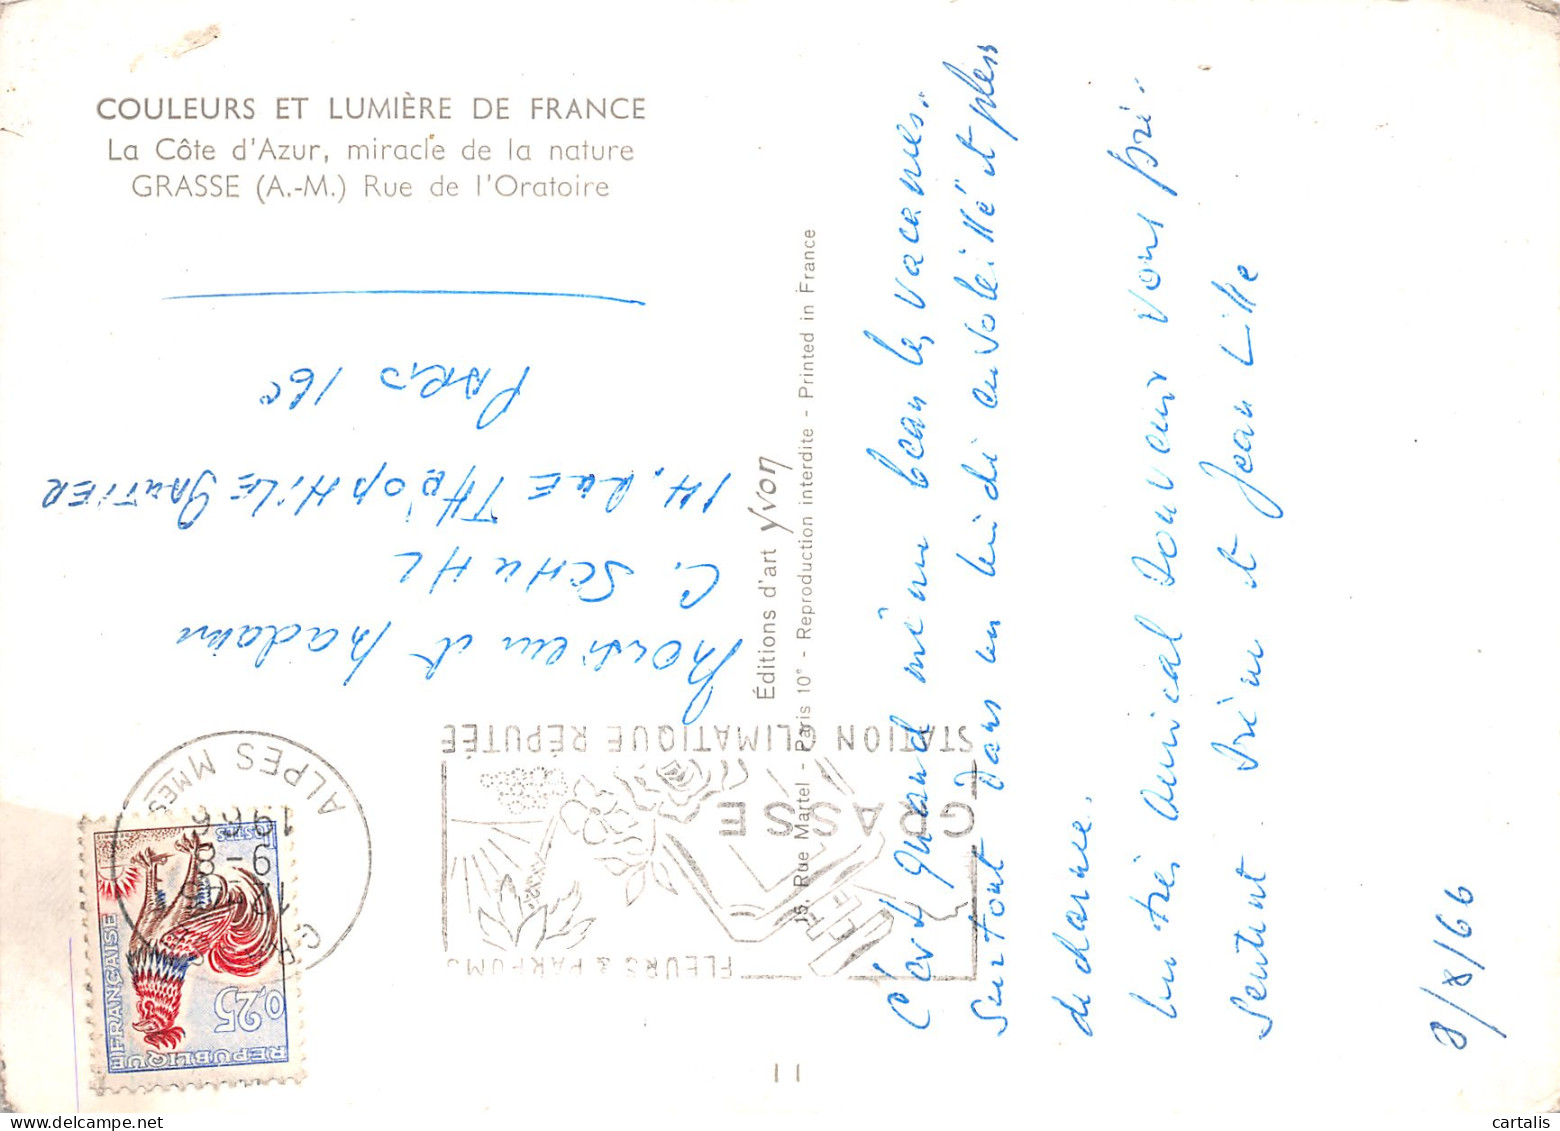 COULEURS ET LUMIÈRE DE FRANCE
La Côte d'Azur, miracle de la nature
GRASSE (A.-M.) Rue de l'Oratoire
Éditions d'art yvon
15, Rue Martel - Paris 10e - Reproduction interdite - Printed in France
Monsieur et Madame
C. SCHUHL
14. RUE THÉOPHILE GAUTIER
PARIS 16e
8/8/66
C'est quand même beau les vacances.
Surtout dans un midi ensoleillé et plein
de charme.
Un très amical souvenir vous pré-
sentent Irène et Jean Lille
FLEURS & PARFUMS
GRASSE
STATION CLIMATIQUE RÉPUTÉE
9-8
1966
ALPES MMES
REPUBLIQUE FRANÇAISE
0,25
POSTES
cartalis